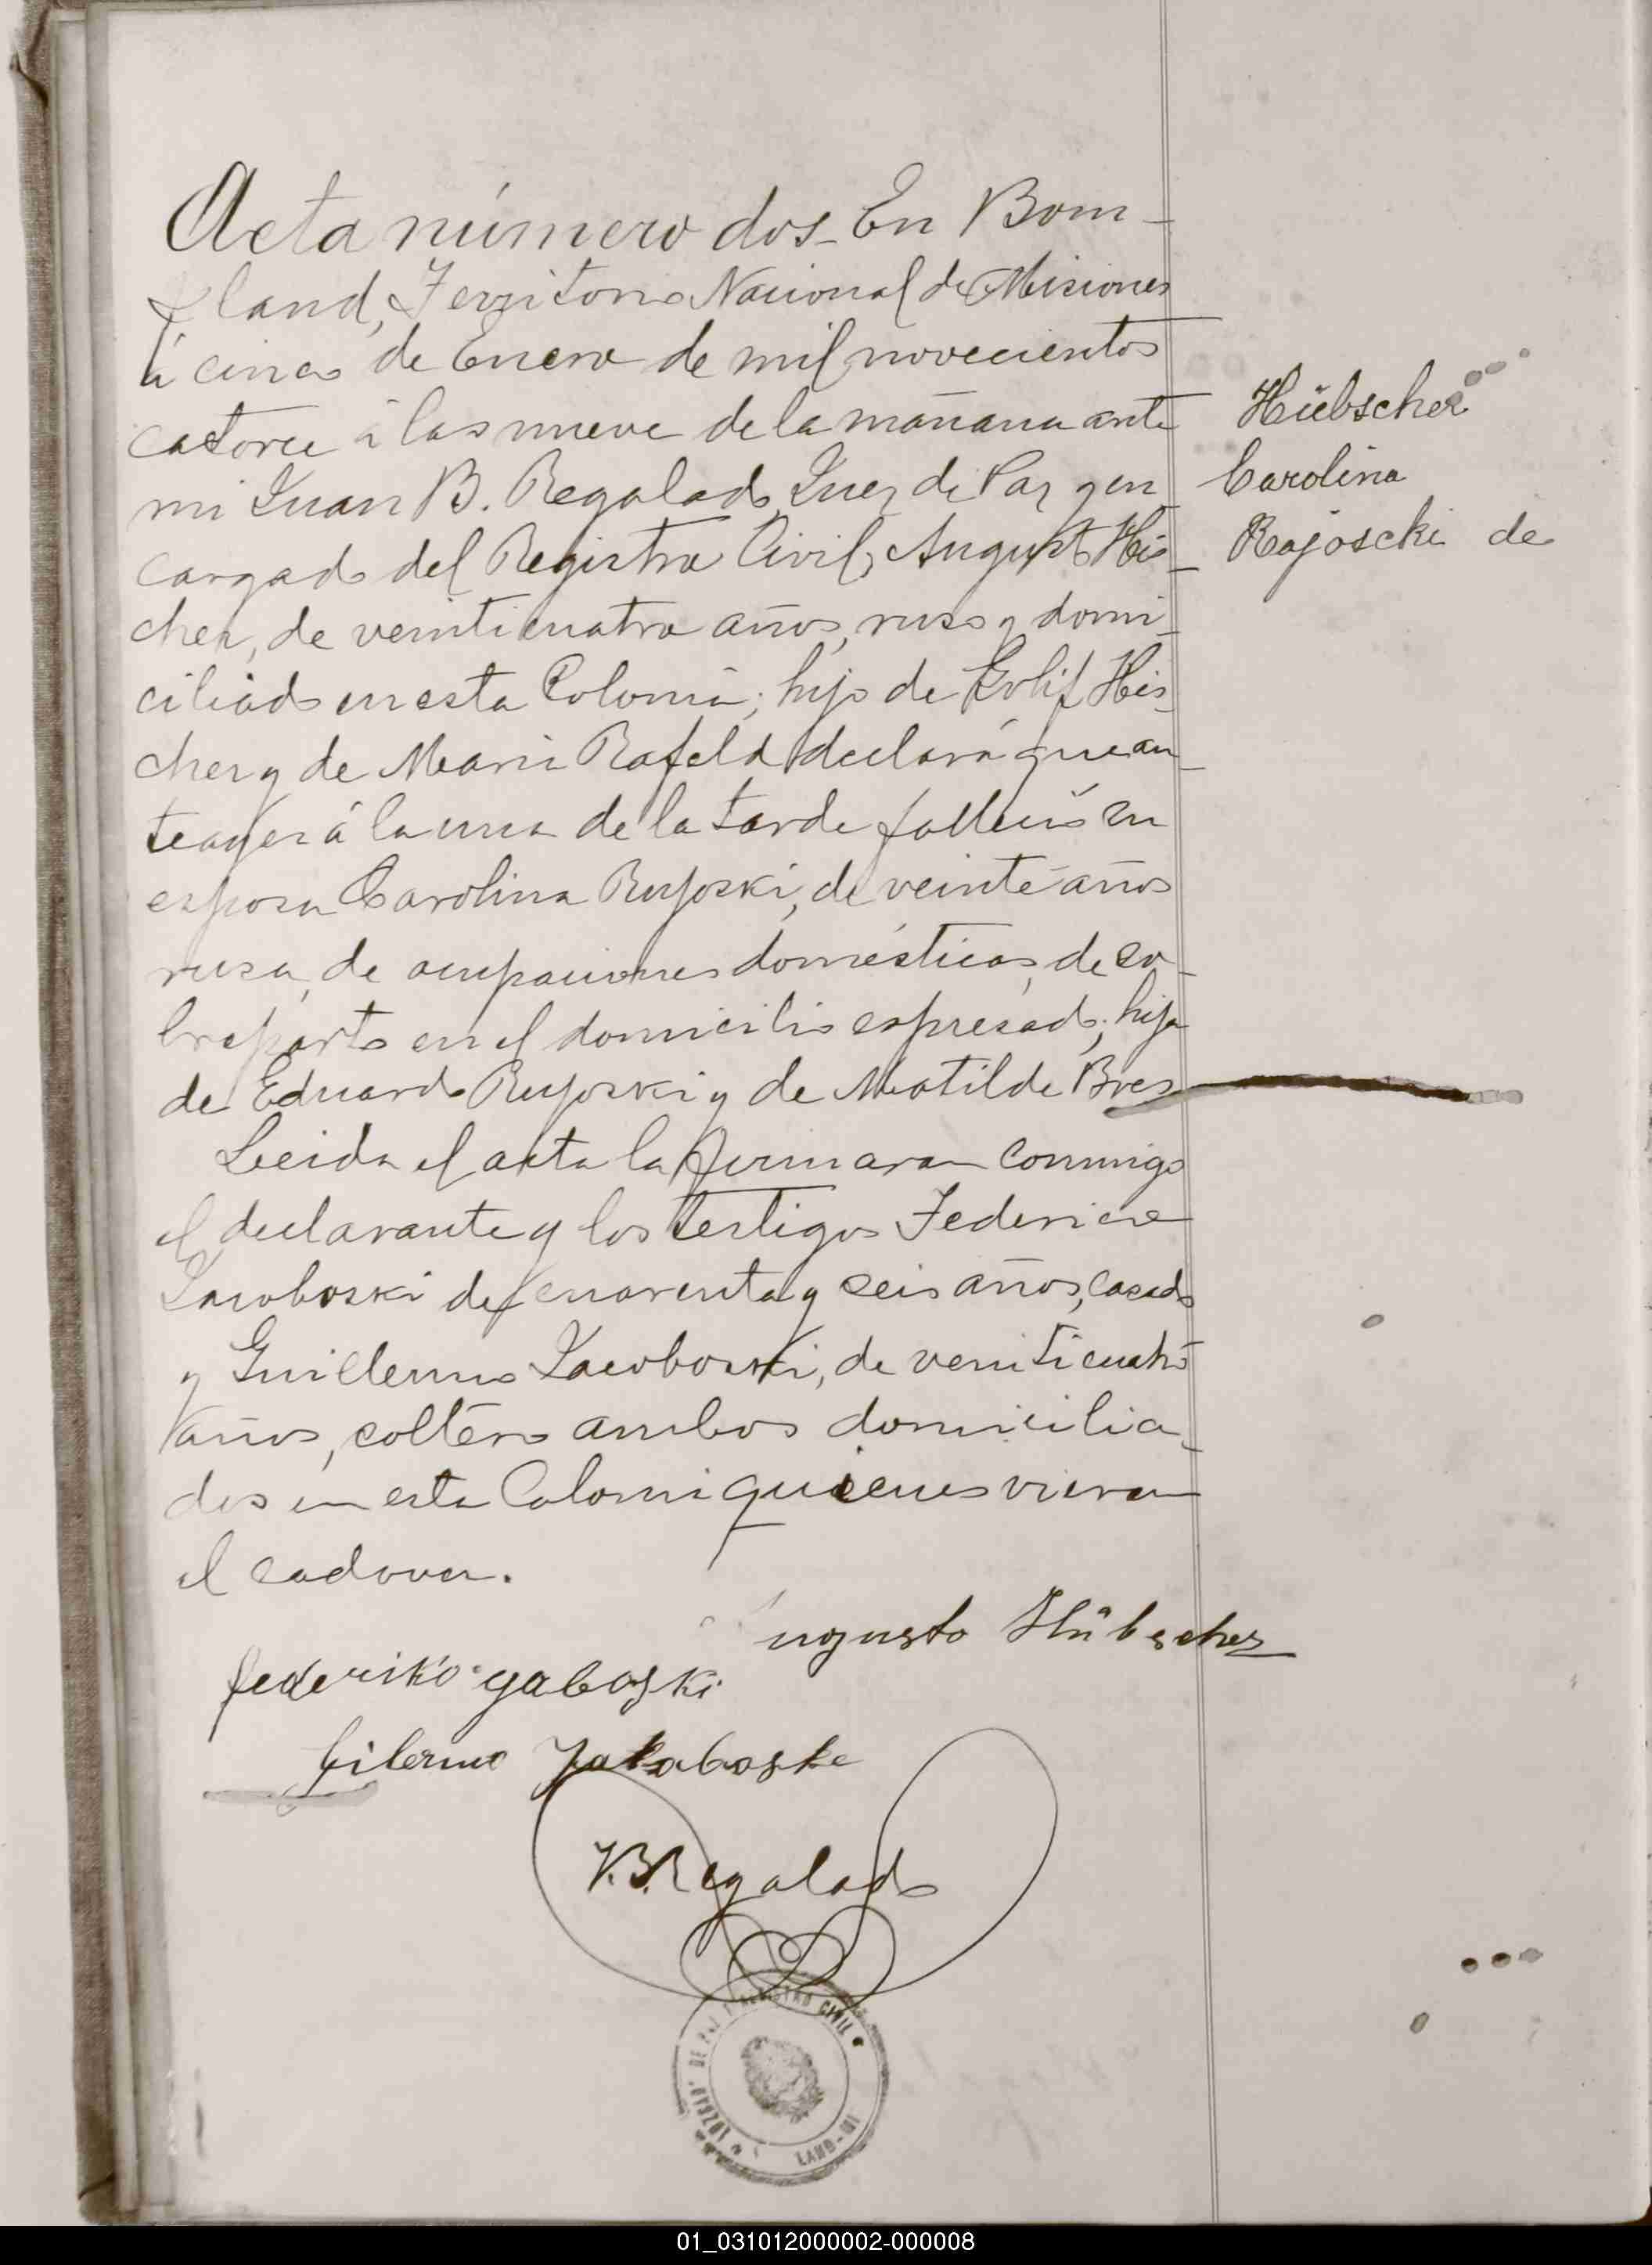 Acta número dos_ En Bom-
pland, Territorio Nacional de Misiones
á cinco de Enero de mil novecientos
catorce á las nueve de la mañana ante
mi Juan B. Regalado Juez de Paz y en
cargado del Registro Civil, Augusto His_
cher, de veinticuatro años, ruso y domi_
ciliado en esta Colonia; hijo de His_
cher y de Maria Rafeld declaró que an_
teayer á la una de la tarde falleció su
esposa Carolina Ruyoski, de veinte años
rusa, de ocupaciones domésticas, de so_
breparto en el domicilio espresado; hija
de Eduardo Ruyoski y de Matilde Bres
Leida el acta la firmaron conmigo
el declarante y los testigos Federico
Jacoboski de cuarenta y seis años, casado
y Guillermo Jacoboski, de veinticuatro
años, soltero ambos domicilia_
dos en esta Colonia quienes vieron
el cadaver.
Hübscher
Carolina
Rajoscki de
ugusto Hübscher
federiko yaboski
Gilermo Jakaboske
J.B. Regalado
JUZGADO DE PAZ REGISTRO CIVIL
LAND-MI
01_031012000002-000008